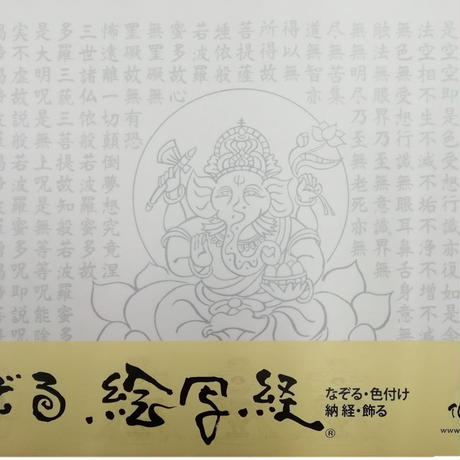 是空即是色受想行識亦復如是舍
法空相不生不滅不垢不淨不増不減
無色無受想行識無眼耳鼻舌身意無
触法無眼界乃至無意識界無
無無明尽乃至無老死亦無
尽無苦集
道無智亦
得以無
所得故
菩提薩
埵依般
若波羅
蜜多故心無
罣礙無
罣礙故無有恐
怖遠離一切顛倒夢想究竟涅
三世諸仏依般若波羅蜜多故
多羅三藐三菩提故知般若波羅蜜多
是大明呪是無上呪是無等等呪能除
実不虚故説般若波羅蜜多呪即説呪
ぞる 絵写経®
なぞる・色付け
納経・飾る
www.